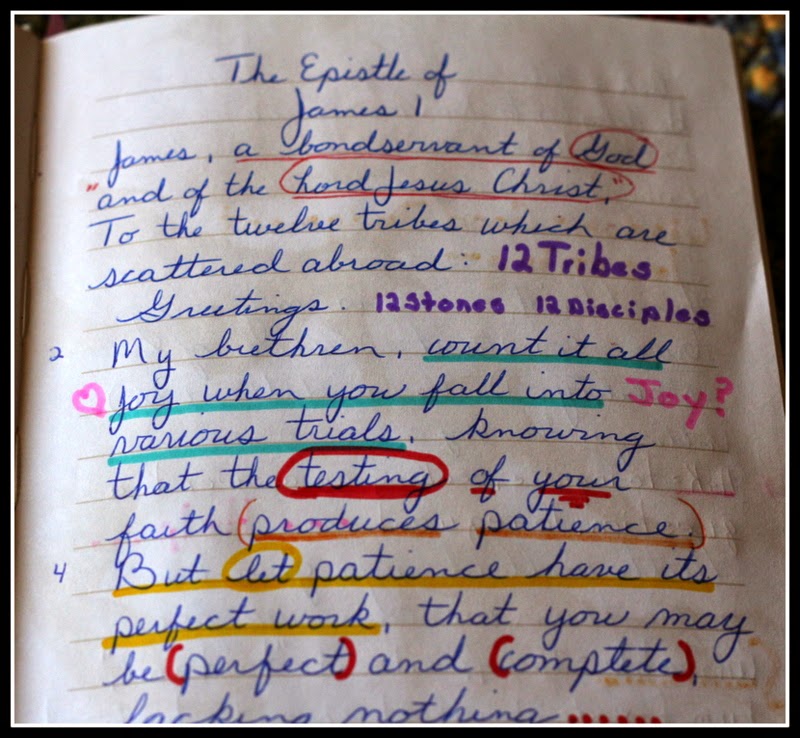 The Epistle of
James 1
James, a bondservant of God
"and of the Lord Jesus Christ,"
To the twelve tribes which are
scattered abroad: 12 Tribes
Greetings. 12 Stones 12 Disciples
2 My brethren, count it all
joy when you fall into Joy?
various trials, knowing
that the testing of your
faith (produces patience.)
4 But let patience have its
perfect work, that you may
be (perfect) and (complete),
lacking nothing